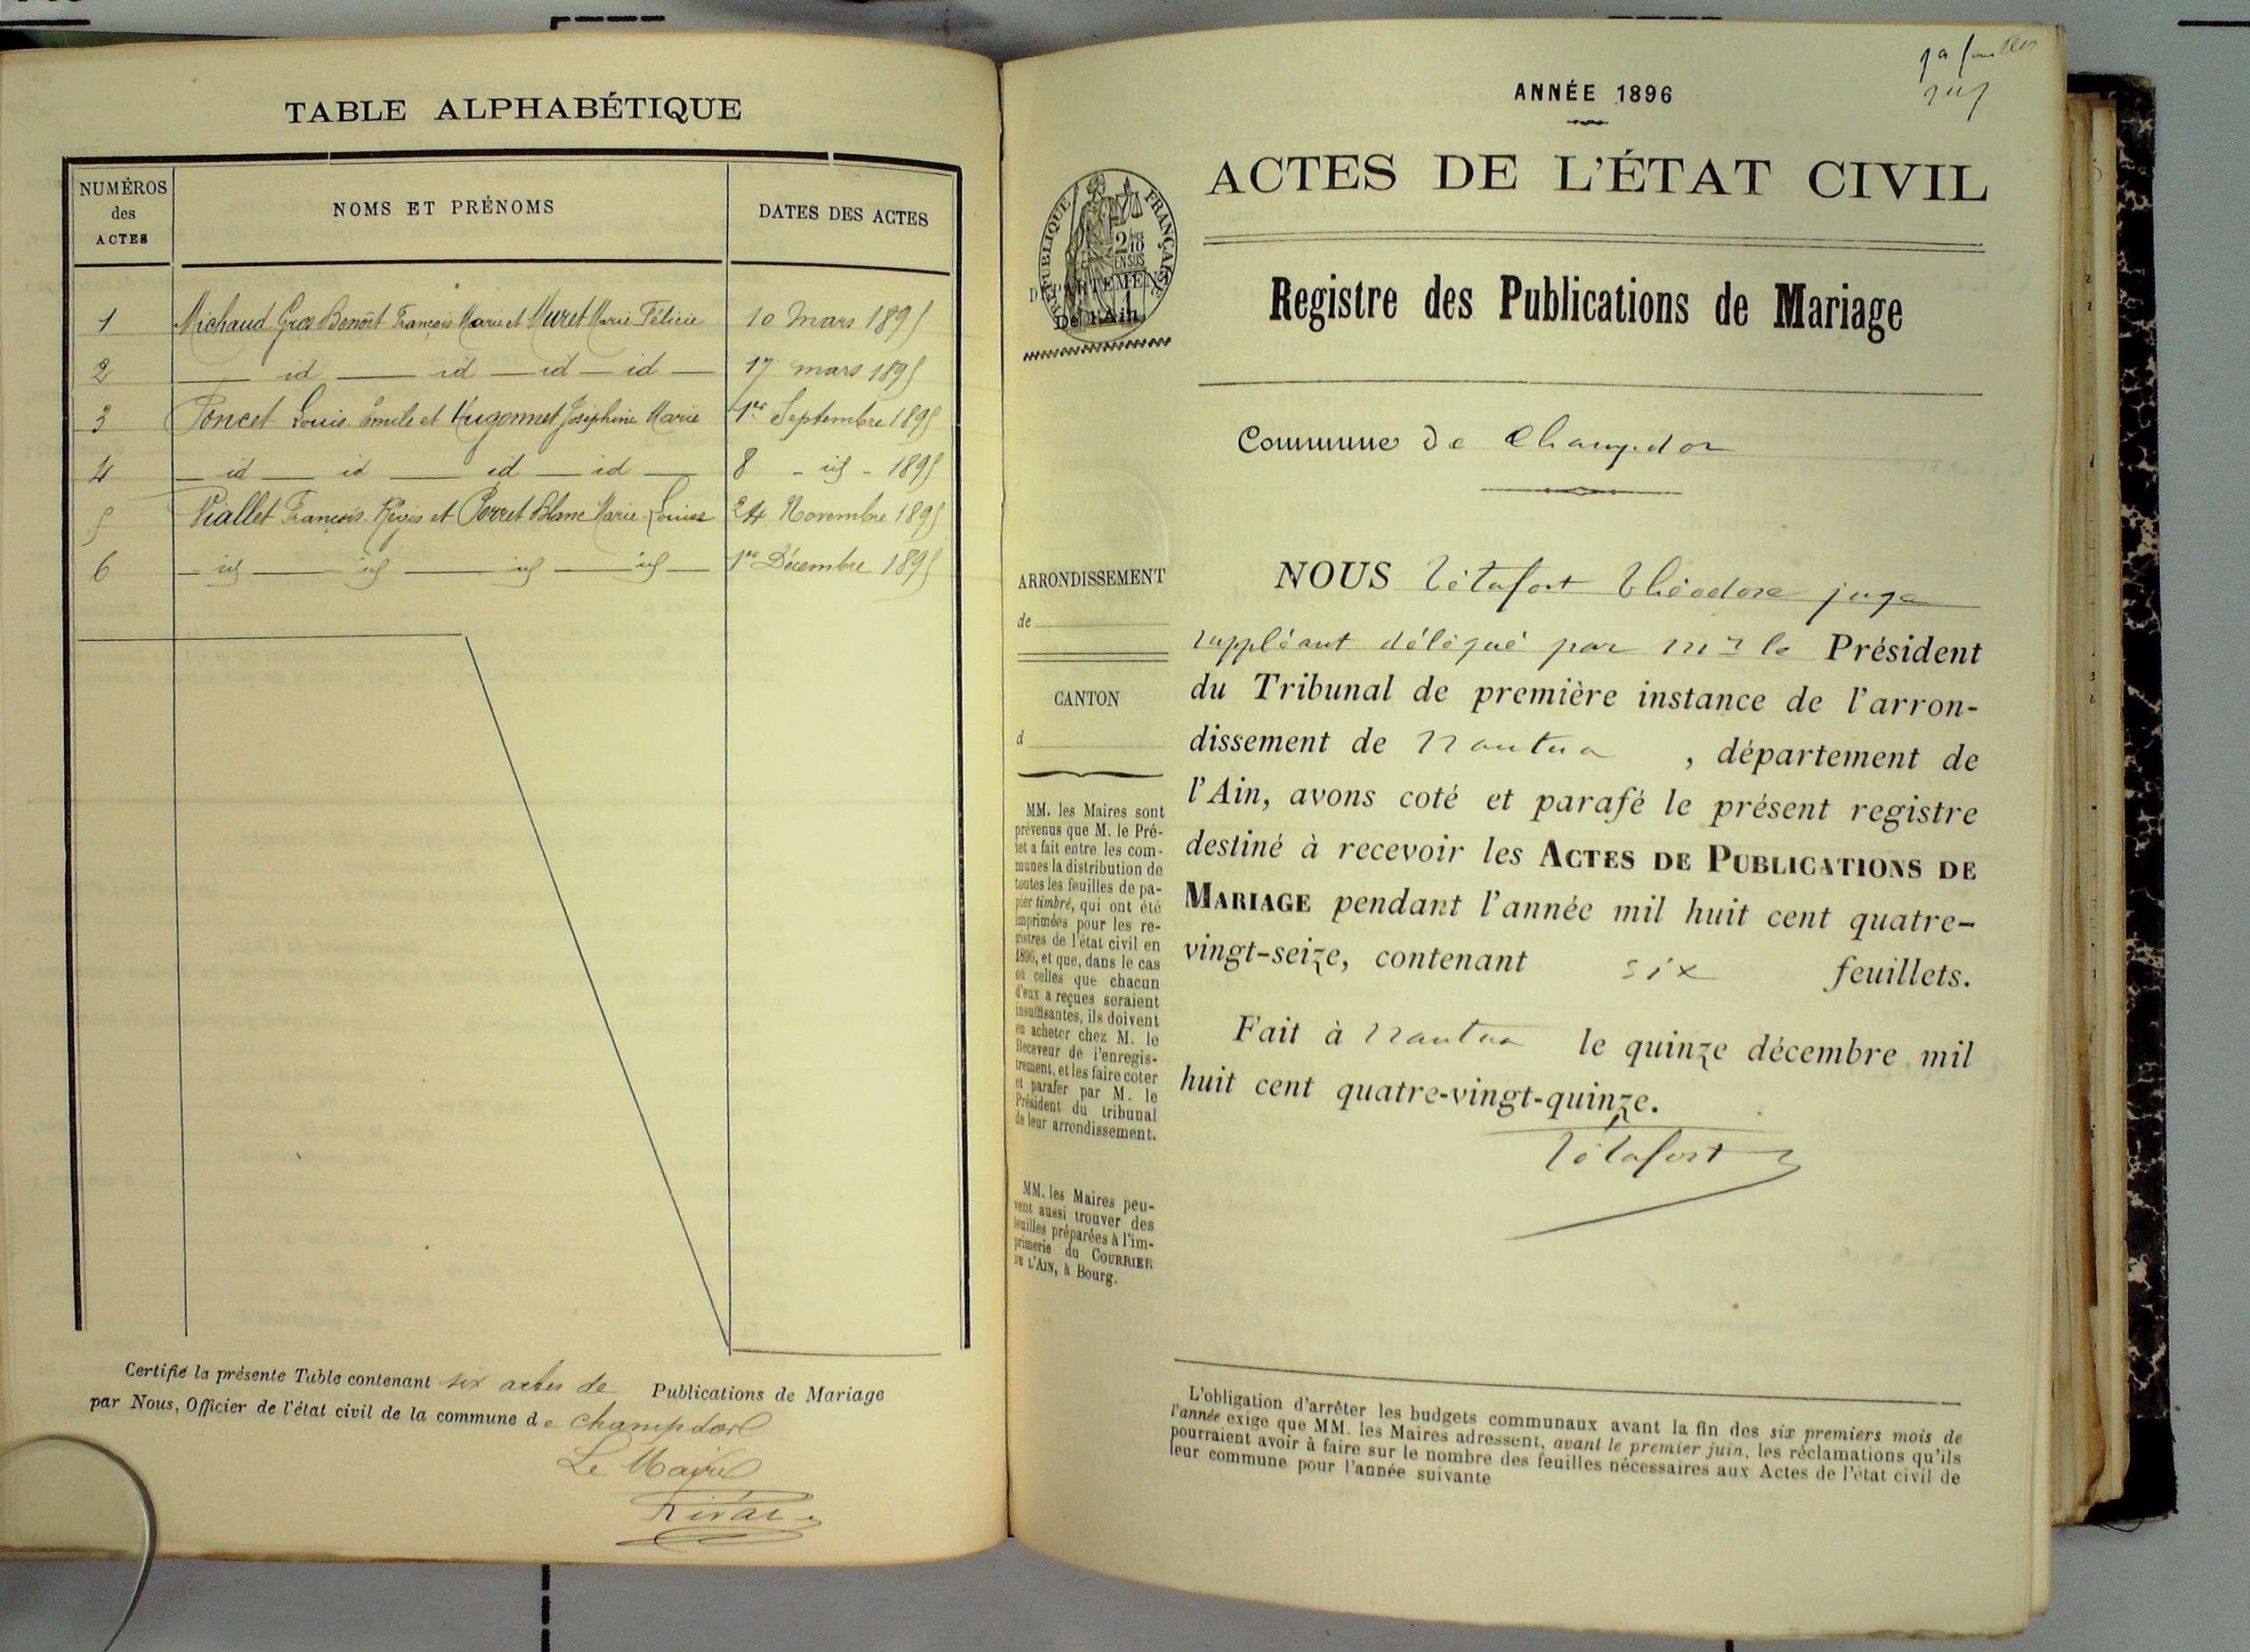 TABLE ALPHABÉTIQUE
NUMÉROS des ACTES
NOMS ET PRÉNOMS
DATES DES ACTES
1 Michaud Gros Benoît François Marie et Muret Marie Félicie 10 Mars 1895
2 — id — id — id — id — 17 mars 1895
3 Poncet Louis Emile et Hugonnet Joséphine Marie 1er Septembre 1895
4 — id — id — id — id — 8 - id - 1895
5 Viallet François Régis et Perret Blanc Marie Louise 24 Novembre 1895
6 — id — id — id — id — 1er Décembre 1895
Certifié la présente Table contenant six actes de Publications de Mariage
par Nous, Officier de l'état civil de la commune de Champdor
Le Maire
1er feuillet
ANNÉE 1896
ACTES DE L'ÉTAT CIVIL
RÉPUBLIQUE FRANÇAISE
2/10 EN SUS
DÉPARTEMENT
De l'Ain
Registre des Publications de Mariage
Commune de Champdor
ARRONDISSEMENT
de
CANTON
d
MM. les Maires sont
prévenus que M. le Pré-
fet a fait entre les com-
munes la distribution de
toutes les feuilles de pa-
pier timbré, qui ont été
imprimées pour les re-
gistres de l'état civil en
1896, et que, dans le cas
où celles que chacun
d'eux a reçues seraient
insuffisantes, ils doivent
en acheter chez M. le
Receveur de l'enregis-
trement, et les faire coter
et parafer par M. le
Président du tribunal
de leur arrondissement.
MM. les Maires peu-
vent aussi trouver des
feuilles préparées à l'im-
primerie du COURRIER
DE L'AIN, à Bourg.
NOUS Tétafort Théodore juge
suppléant délégué par Mr le Président
du Tribunal de première instance de l'arron-
dissement de Nantua, département de
l'Ain, avons coté et parafé le présent registre
destiné à recevoir les ACTES DE PUBLICATIONS DE
MARIAGE pendant l'année mil huit cent quatre-
vingt-seize, contenant six feuillets.
Fait à Nantua le quinze décembre mil
huit cent quatre-vingt-quinze.
Tétafort
L'obligation d'arrêter les budgets communaux avant la fin des six premiers mois de
l'année exige que MM. les Maires adressent, avant le premier juin, les réclamations qu'ils
pourraient avoir à faire sur le nombre des feuilles nécessaires aux Actes de l'état civil de
leur commune pour l'année suivante